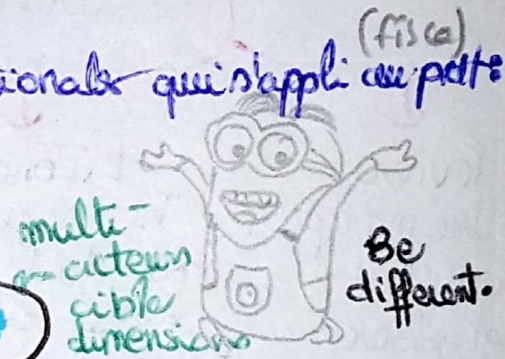 (fisca)
ionale qui s'appli au
multi-
acteurs
cible
dimensions
Be
different.